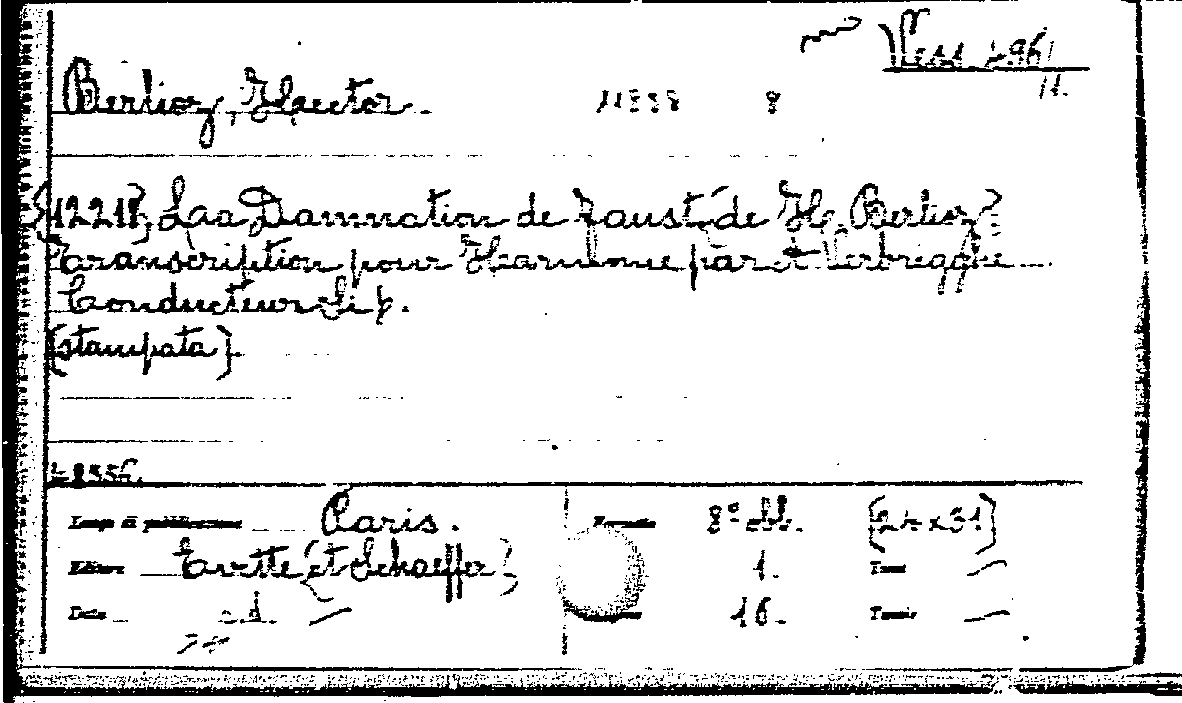 Vess. 296/
11.
Berlioz, Haector. 8
[1221], Laa Damnation de Faust, de H. Berlioz.
Transcription pour Harmonie par
Conducteur Si b.
[stampata].
Luogo di pubblicazione Paris. Formato 8° obl. [24 x 31]
Editore Evette [et Schaeffer] 1. Tomi
Data s.d. 16. Tavole